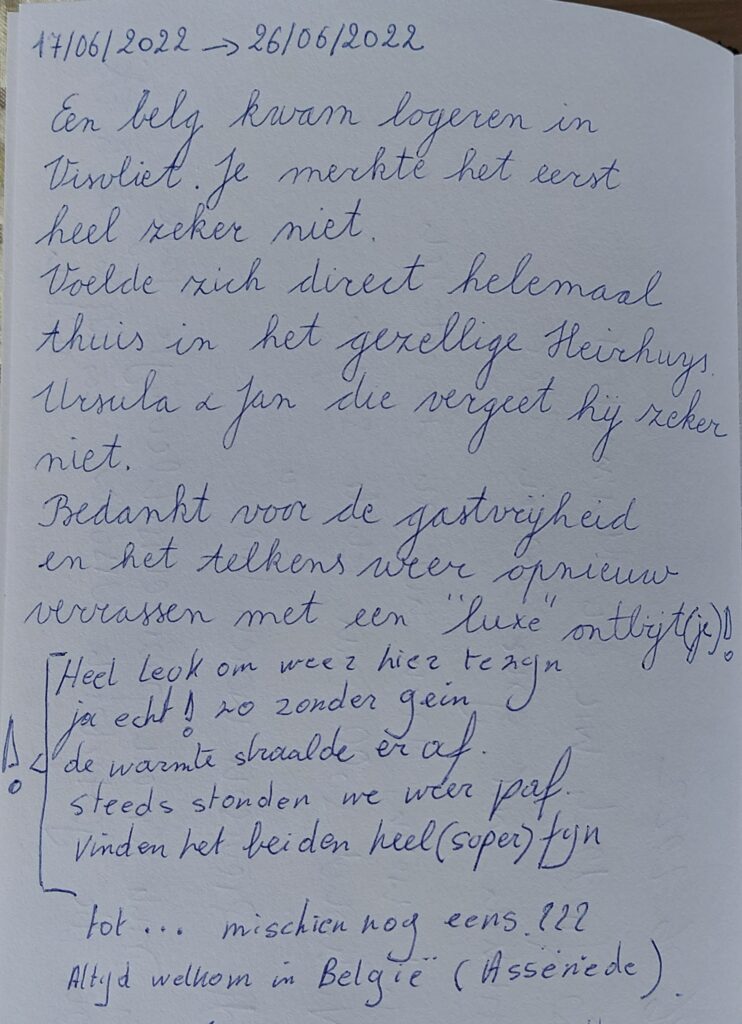 17/06/2022 → 26/06/2022
Een belg kwam logeren in
Visvliet. Je merkte het eerst
heel zeker niet.
Voelde zich direct helemaal
thuis in het gezellige Heirhuys.
Ursula & Jan die vergeet hij zeker
niet.
Bedankt voor de gastvrijheid
en het telkens weer opnieuw
verrassen met een "luxe" ontbijt(je)!
Heel leuk om weer hier te zijn
ja echt! zo zonder gein
de warmte straalde er af.
steeds stonden we weer paf.
vinden het beiden heel (soper) fijn
!
tot ... mischien nog eens. ???
Altijd welkom in België (Assenede).